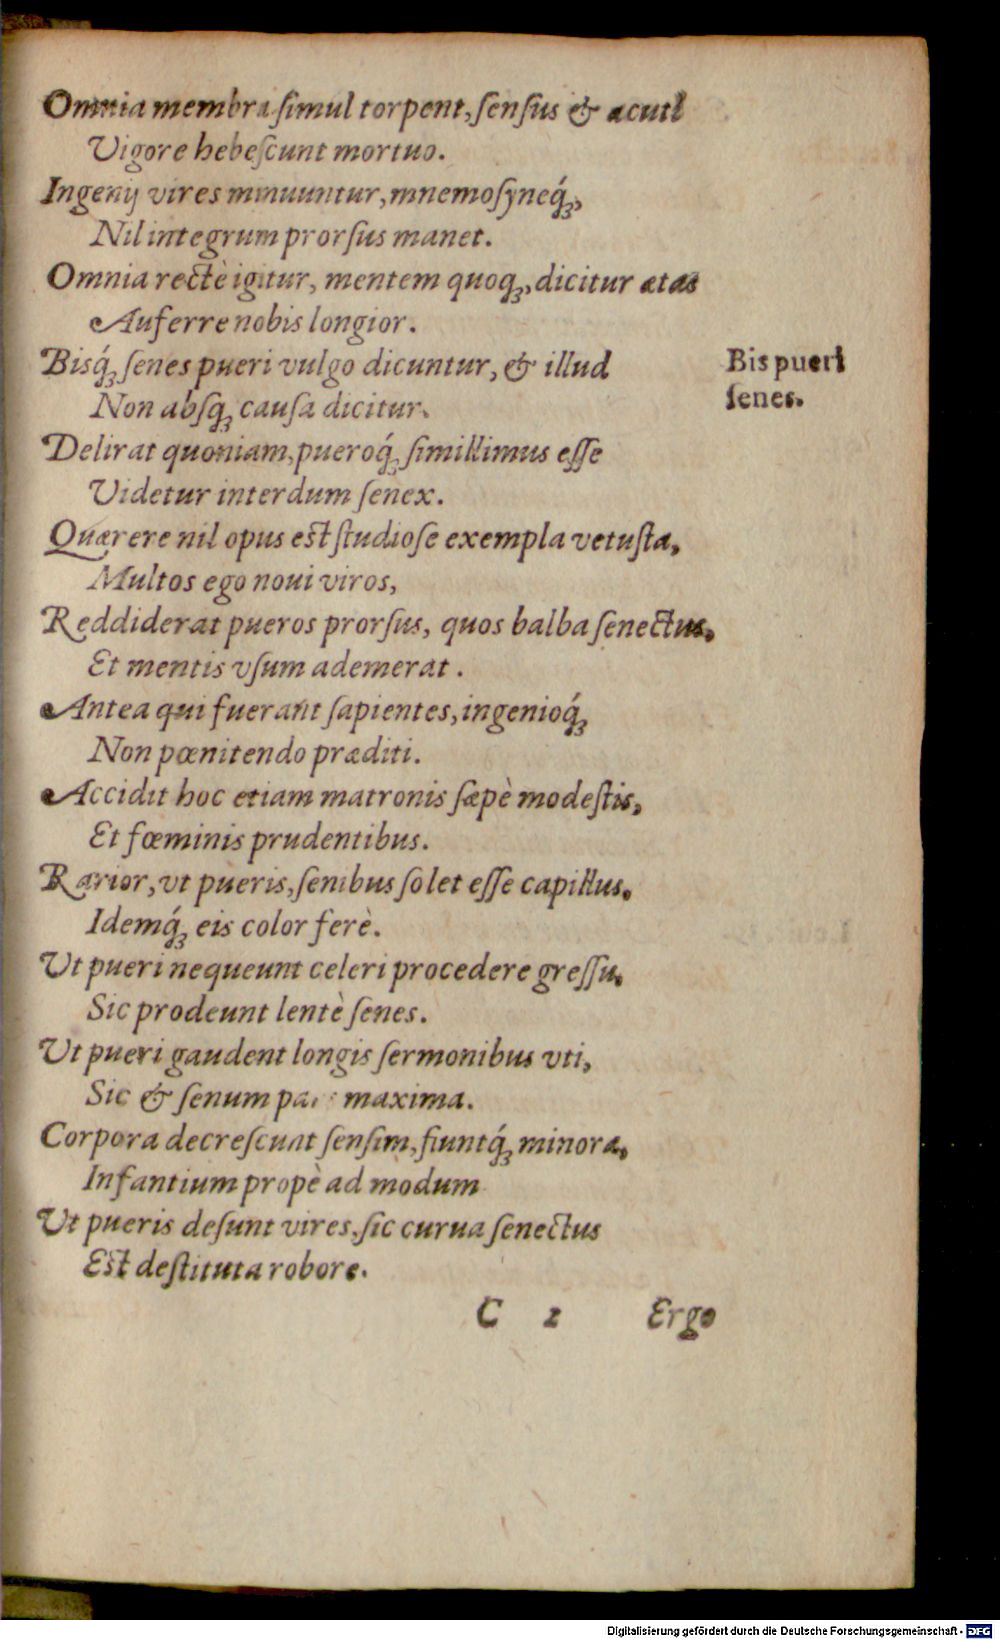 Omnia membra ſimul torpent, ſenſus & acuti
Vigore hebeſcunt mortuo.
Ingenij vires minuuntur, mnemoſyneq́ꝫ,
Nil integrum prorſus manet.
Omnia rectè igitur, mentem quoqꝫ, dicitur ætas
Auferre nobis longior.
Bisq́ꝫ ſenes pueri vulgo dicuntur, & illud
Non abſqꝫ cauſa dicitur.
Bis pueri
ſenes.
Delirat quoniam, pueroq́ꝫ ſimillimus eſſe
Videtur interdum ſenex.
Quærere nil opus eſt ſtudioſe exempla vetuſta,
Multos ego noui viros,
Reddiderat pueros prorſus, quos balba ſenectus,
Et mentis vſum ademerat.
Antea qui fuerant ſapientes, ingenioq́ꝫ
Non pœnitendo præditi.
Accidit hoc etiam matronis ſæpè modeſtis,
Et fœminis prudentibus.
Rarior, vt pueris, ſenibus ſolet eſſe capillus,
Idemq́ꝫ eis color ferè.
Vt pueri nequeunt celeri procedere greſſu,
Sic prodeunt lentè ſenes.
Vt pueri gaudent longis ſermonibus vti,
Sic & ſenum pars maxima.
Corpora decreſcunt ſenſim, fiuntq́ꝫ minora,
Infantium propè ad modum
Vt pueris deſunt vires, ſic curua ſenectus
Eſt deſtituta robore.
C 2 Ergo
Digitalisierung gefördert durch die Deutsche Forschungsgemeinschaft - DFG